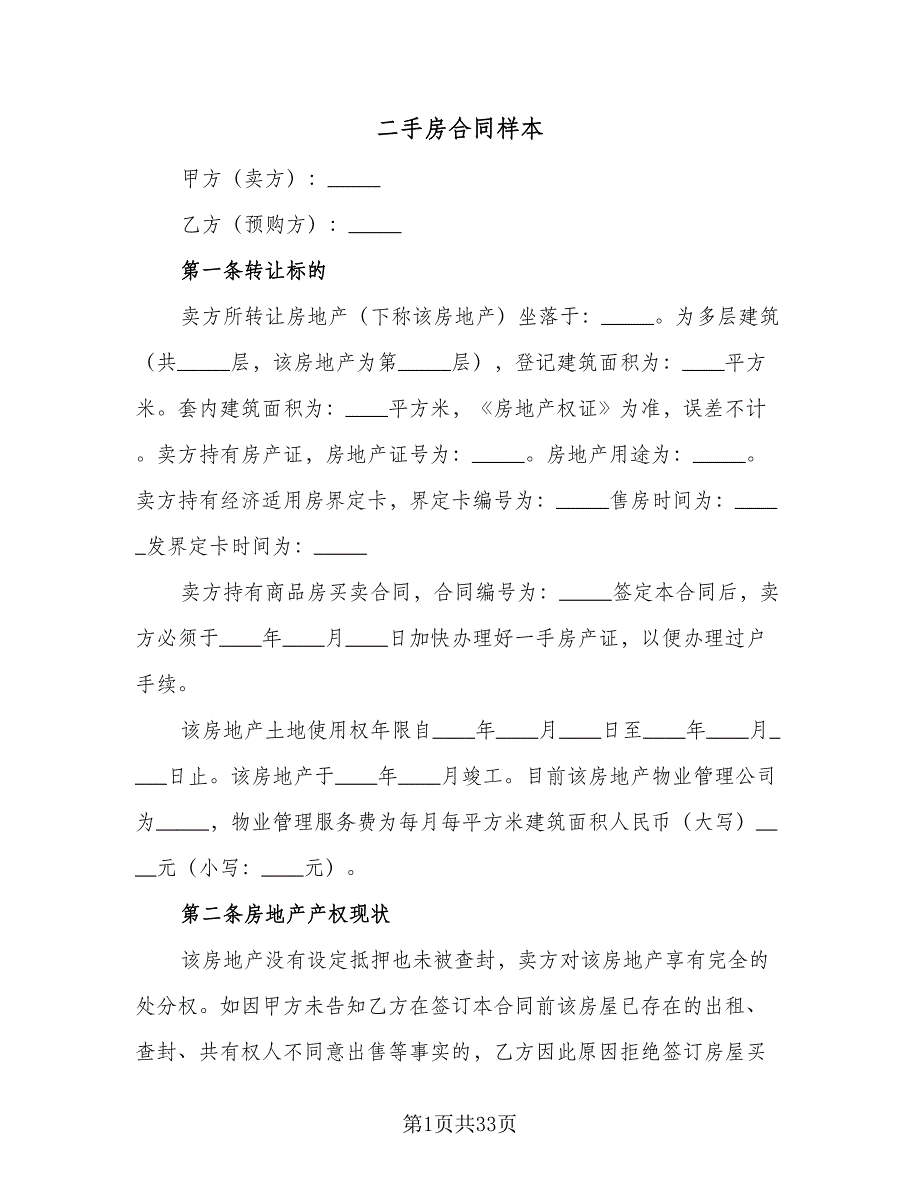 二手房合同样本
甲方（卖方）：_____
乙方（预购方）：_____
第一条转让标的
卖方所转让房地产（下称该房地产）坐落于：_____。为多层建筑
（共_____层，该房地产为第_____层），登记建筑面积为：____平方
米。套内建筑面积为：____平方米，《房地产权证》为准，误差不计
。卖方持有房产证，房地产证号为：_____。房地产用途为：_____。
卖方持有经济适用房界定卡，界定卡编号为：_____售房时间为：____
_发界定卡时间为：_____
卖方持有商品房买卖合同，合同编号为：_____签定本合同后，卖
方必须于____年____月____日加快办理好一手房产证，以便办理过户
手续。
该房地产土地使用权年限自____年____月____日至____年____月_
___日止。该房地产于____年____月竣工。目前该房地产物业管理公司
为_____，物业管理服务费为每月每平方米建筑面积人民币（大写）__
__元（小写：____元）。
第二条房地产产权现状
该房地产没有设定抵押也未被查封，卖方对该房地产享有完全的
处分权。如因甲方未告知乙方在签订本合同前该房屋已存在的出租、
查封、共有权人不同意出售等事实的，乙方因此原因拒绝签订房屋买
第1页共33页